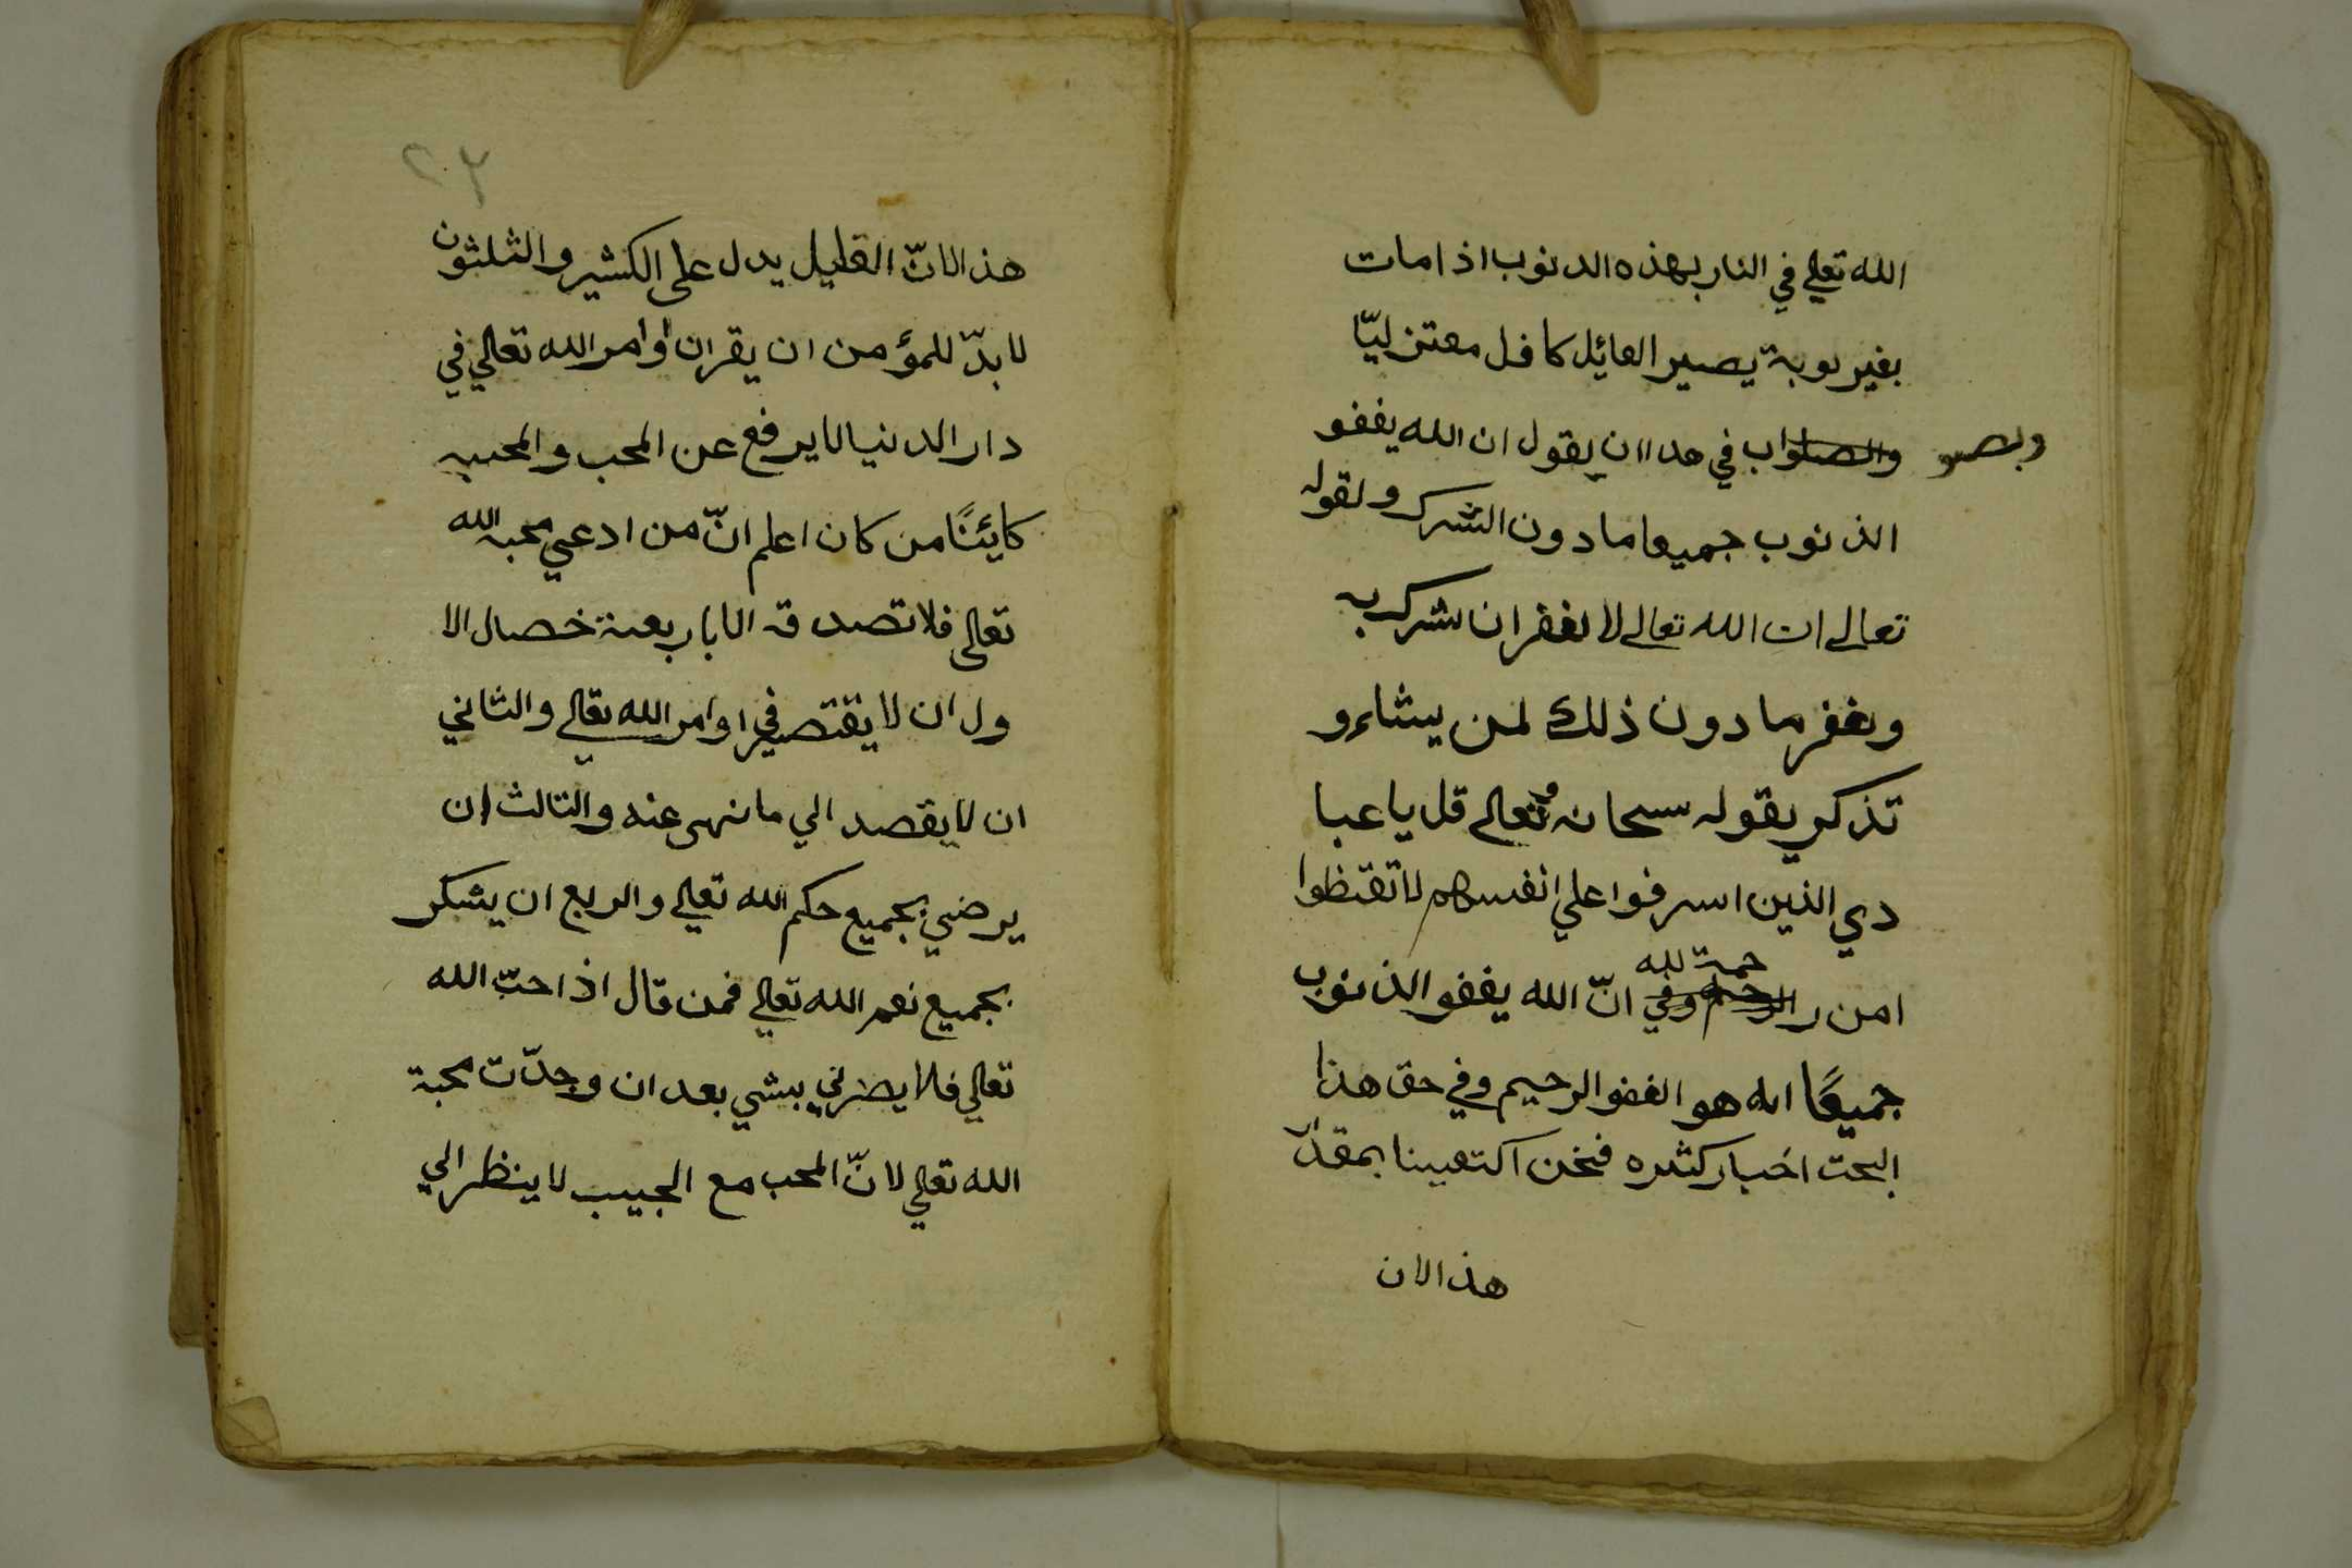 الله تعلي في النار بهذه الدنوب اذا مات
بغير توبة يصير القائل كافر معتزليّا
والصلواب في هدا ان يقول ان الله يغفو
الذنوب جميعا ما دون الشرك ولقوله
تعالى ان الله تعالى لا يغفر ان يشرك به
ويغفر ما دون ذلك لمن يشاء و
تذكر بقوله سبحانه وتعالى قل يا عبا
دي الذين اسرفوا علي انفسهم لا تقنظوا
امن رحمة لله انّ الله يغفو الذنوب
جميعًا انه هو الغفو الرحيم وفي حق هذا
البحت اخبار كثيره فنحن اكتفينا بمقدار
هذ الان
٢٣
هذ الانّ القليل يدل على الكثير والثلثون
لا بدّ للمؤمن ان يقر ان اوامر الله تعالي في
دار الدنيا لا يرفع عن المحب والمحبيه
كايئنًا من كان اعلم انّ من ادعي محبة الله
تعالى فلا تصدقه الا باربعة خصال الا
ول ان لا يقتصر في اوامر الله تعالي والثاني
ان لا يقصد الي ما نهى عنه والتالث ان
يرضي بجميع حكم الله تعلي والربع ان يشكر
بجميع نعم الله تعلي فمن قال اذا حبّ الله
تعالي فلا يضرني بشي بعد ان وجدّت محبة
الله تعلي لانّ المحب مع الحبيب لا ينظر الي